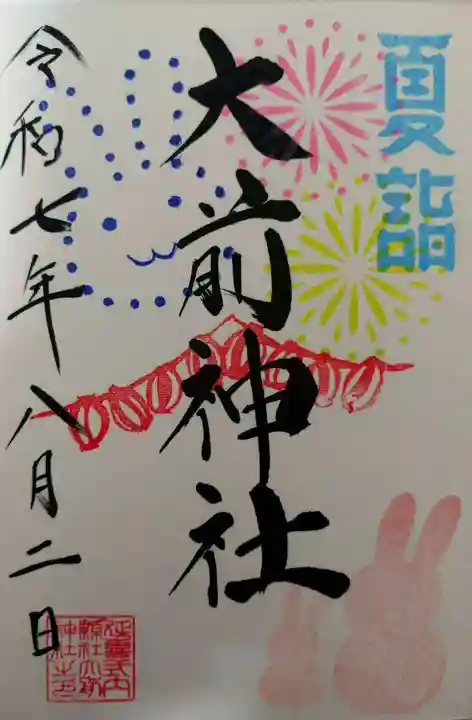 夏詣
大前神社
令和七年八月二日
延喜式内
願社大前
神社之印